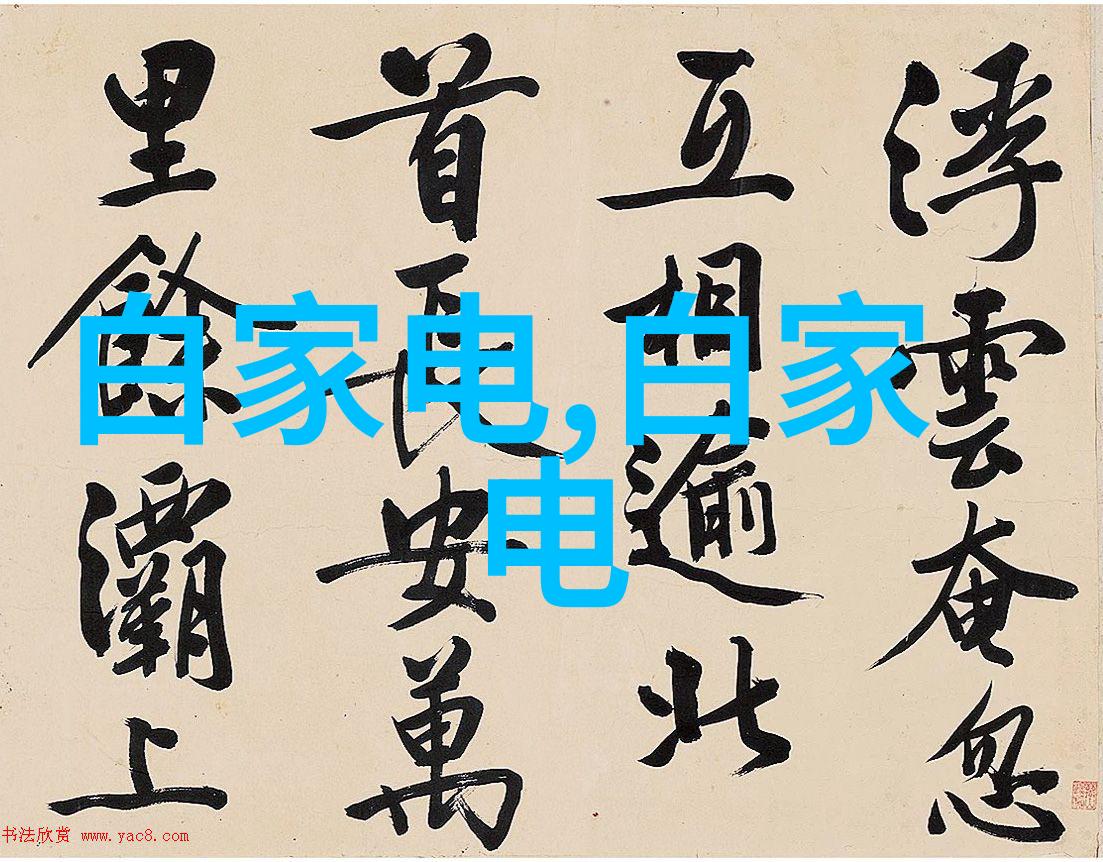 浮雲奄忽
互相逾北
首長安萬
里餘灞上
白家电,白家
电
书法欣赏 www.yac8.com